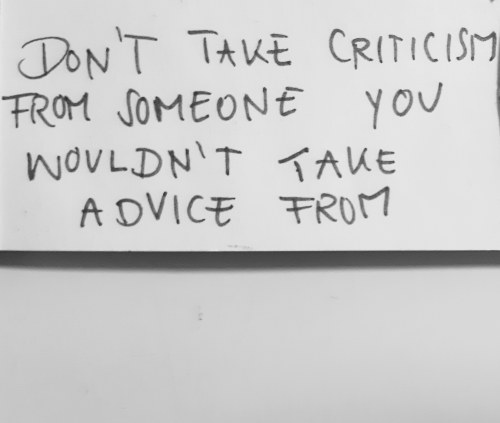 DON'T TAKE CRITICISM
FROM SOMEONE YOU
WOULDN'T TAKE
ADVICE FROM